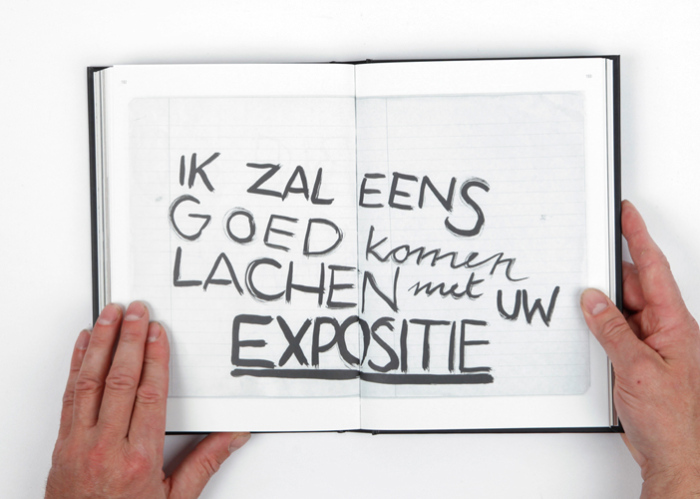 IK ZAL EENS
GOED komen
LACHEN met UW
EXPOSITIE